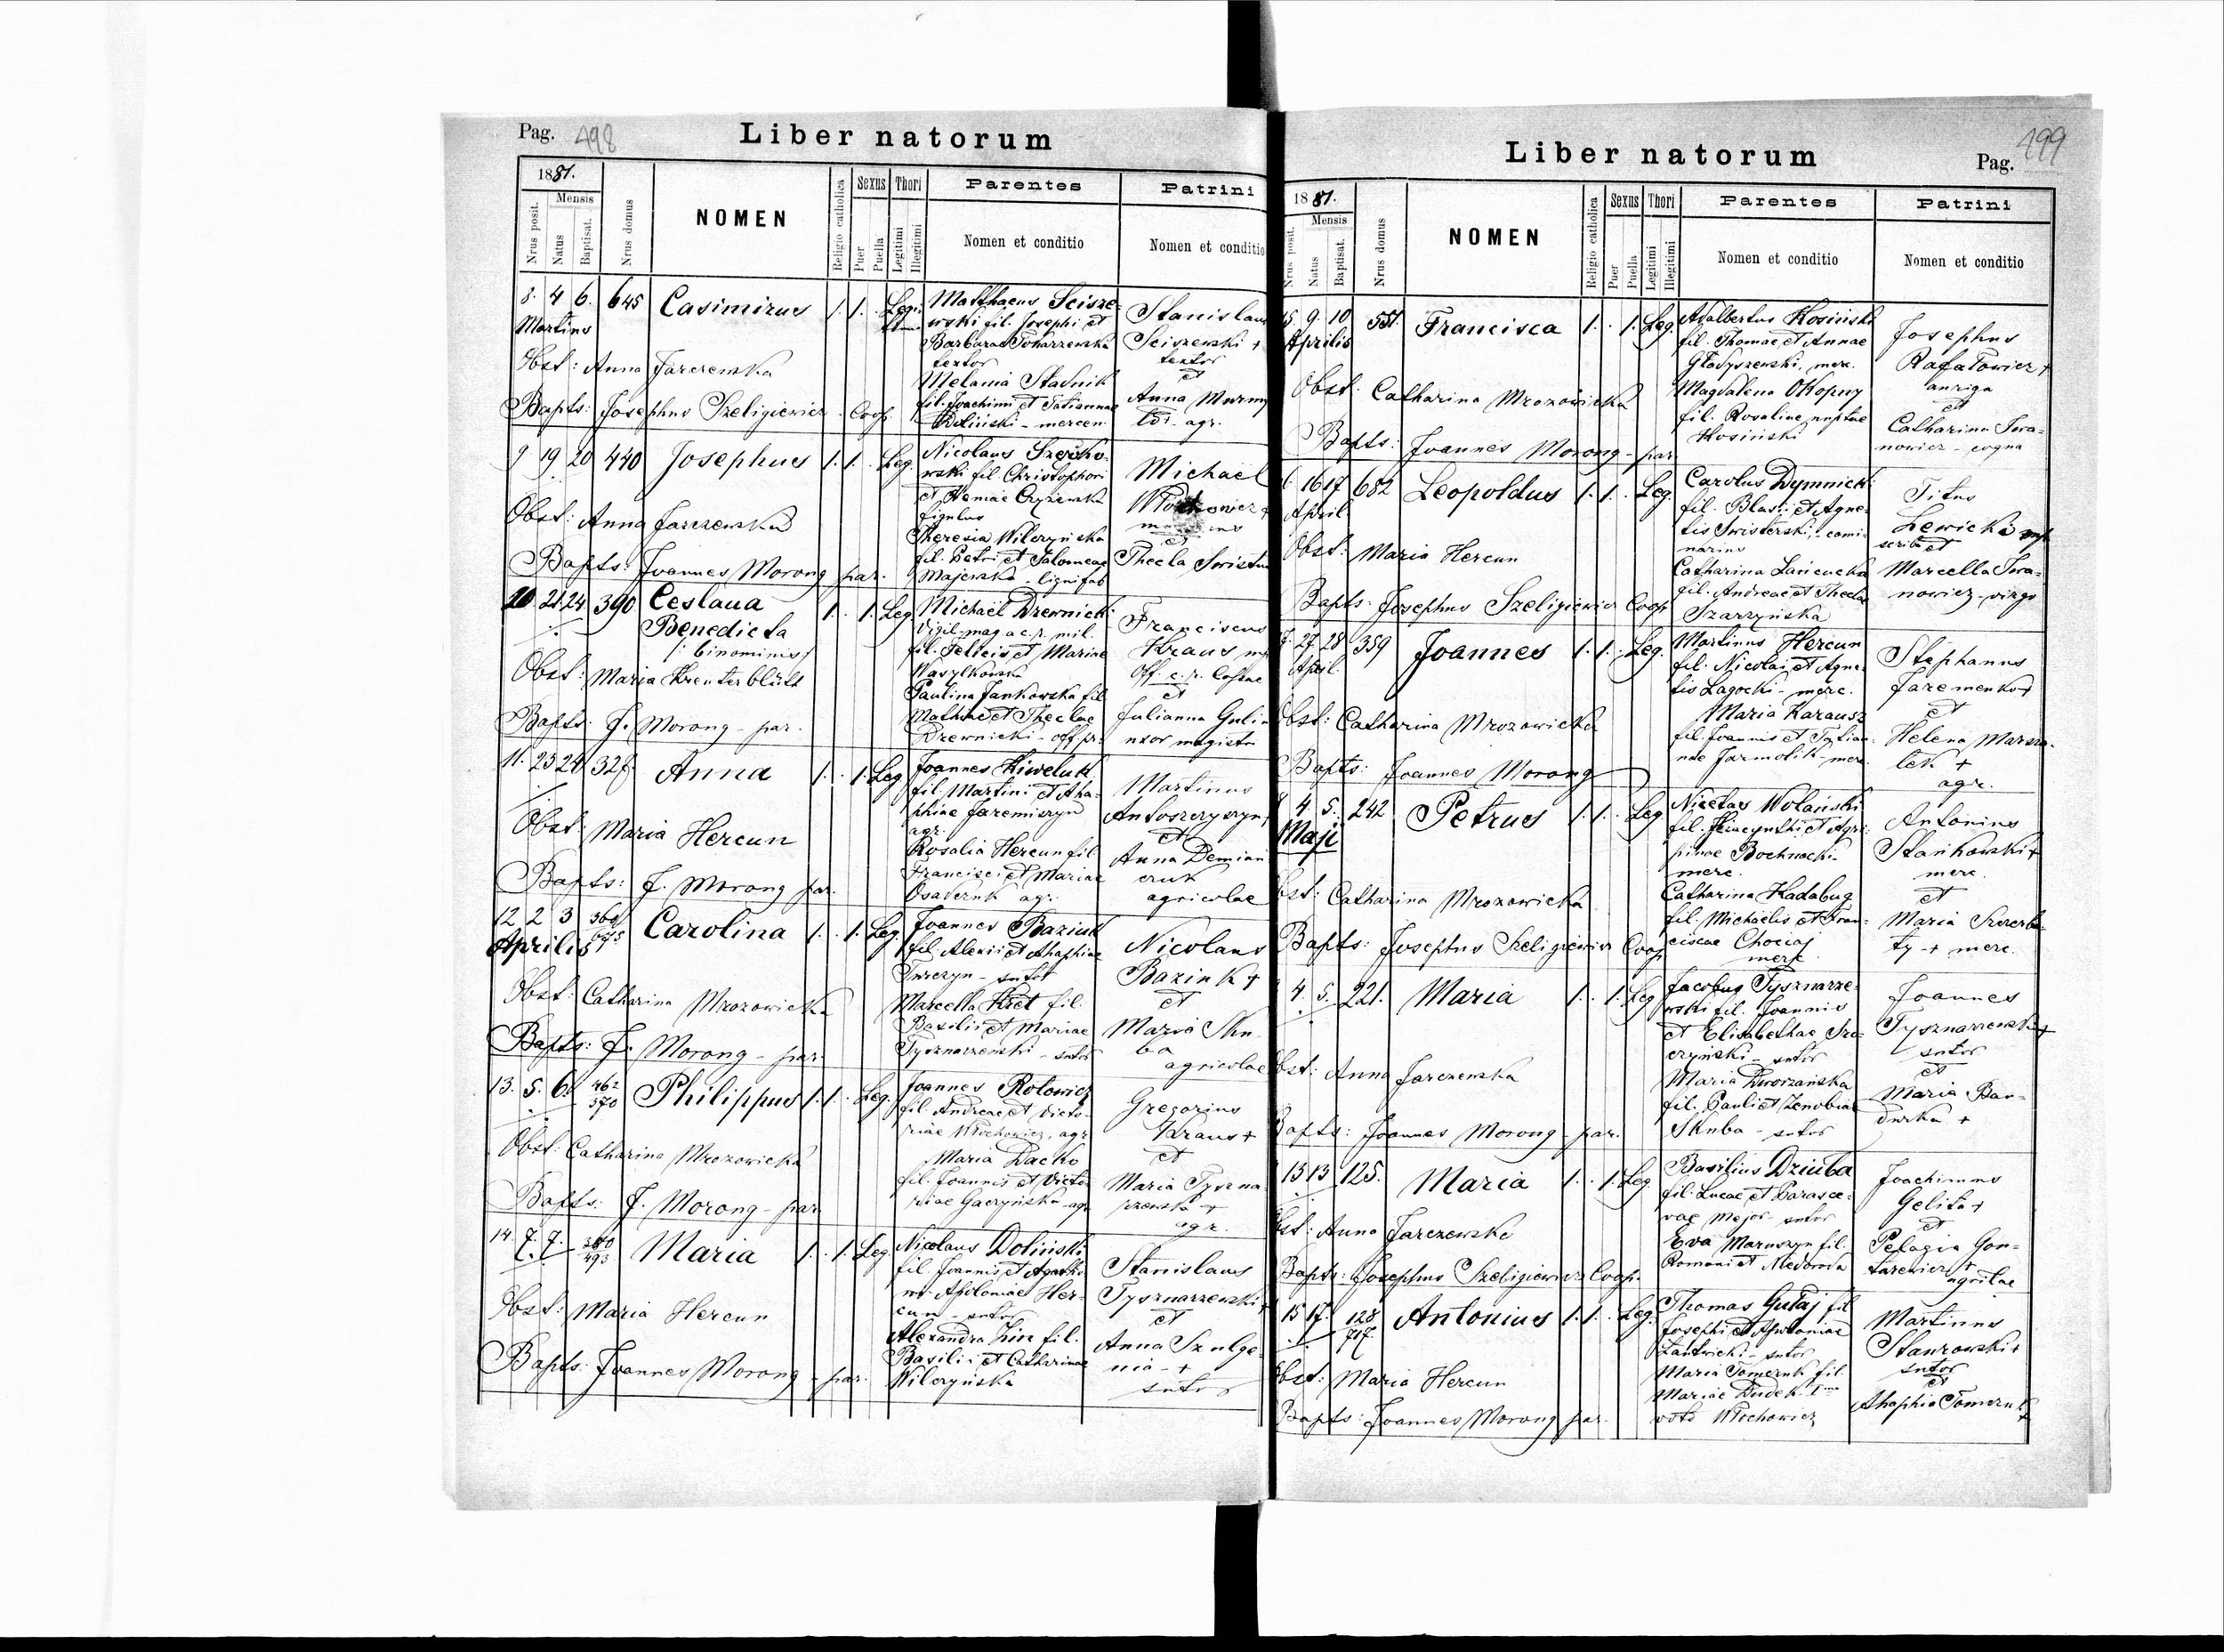 Pag. 498
Liber natorum
1881.
Nrus posit.
Mensis
Natus
Baptisat.
Nrus domus
NOMEN
Religio catholica
Sexus
Puer
Puella
Thori
Legitimi
Illegitimi
Parentes
Nomen et conditio
Patrini
Nomen et conditio
8. 4 6. 645 Casimirus 1. 1. Leg.
Martius
Matthaeus Scisze-
wski fil. Josephi et
Barbarae
textor
Melania Stadnik
fil. Joachimi et Tatiannae
Doliński - mercen.
Stanislaus
Sciszewski +
textor
et
Anna
agr.
Obst: Anna Jarczewska
Bapts: Josephus Szeligiewicz Coop.
9 19 20 440 Josephus 1. 1. Leg.
Nicolaus
wski fil. Christophori
et
figulus
Theresia Wilczyńska
fil. Petri et Salomeae
Majewska - lignifab
Michael
et
Thecla
Obst: Anna Jarczewska
Bapts: Joannes Morong par.
10. 21 24 390 Ceslaua 1. 1. Leg
Benedicta
/: binominis /
Michaël Drewnicki
fil. Felicis et Mariae
Wasylkowska
Paulina Jankowska fil
Mathiae et Theclae
Drewnicki - off pr.
Franciscus
Kraus
Off. c. r.
et
Julianna
uxor magistri
Obst: Maria Kreuterblüth
Bapts: J. Morong - par.
11. 23 24 327 Anna 1. 1. Leg
Joannes Kiweluk
fil. Martini et Aha-
phiae Jaremiszyn
agr.
Rosalia Hercun fil.
Francisci et Mariae
agr.
Martinus
Antoszczyszyn
et
Anna Demian
czuk
agricolae
Obst: Maria Hercun
Bapts: J. Morong par.
12 2 3 360 Carolina 1. 1. Leg
Aprilis
Joannes Baziuk
fil. Alexii et Ahaphiae
sutor
Marcella Kret fil.
Basilii et Mariae
Tysznarzewski - sutor
Nicolaus
Baziuk +
et
Maria Sku
ba
agricolae
Obst: Catharina Mrozowicka
Bapts: J. Morong - par.
13. 5. 6. 462 Philippus 1. 1. Leg.
370
Joannes Rotowicz
fil. Andreae et Victo-
riae Włochowicz, agr
Maria Dacko
fil. Joannis et Victo
riae Gaczyńska agr
Gregorius
Kraus +
et
Maria Tyszna
rzewska +
agr.
Obst: Catharina Mrozowicka
Bapts: J. Morong - par
14. 7. 7. Maria 1. 1. Leg.
493
Nicolaus Doliński
fil. Joannis et
Apoloniae Her-
cun - sutor
Alexandra fil.
Basilii et Catharinae
Wilczyńska
Stanislaus
Tysznarzewski +
et
Anna Szulge
nia - +
sutor
Obst: Maria Hercun
Bapts: Joannes Morong - par.
Liber natorum
Pag. 499
1881.
Nrus posit.
Mensis
Natus
Baptisat.
Nrus domus
NOMEN
Religio catholica
Sexus
Puer
Puella
Thori
Legitimi
Illegitimi
Parentes
Nomen et conditio
Patrini
Nomen et conditio
5 9. 10 551. Francisca 1. 1. Leg.
Aprilis
Adalbertus Kosiński
fil. Thomae et Annae
Gładyszewski, merc.
Magdalena Okopny
fil. Rosaliae nuptae
Kosiński
Josephus
Rafałowicz +
auriga
et
Catharina Iwa-
nowicz - cogna
Obst: Catharina Mrozowicka
Bapts: Joannes Morong - par
16 17 682 Leopoldus 1. 1. Leg.
April
Carolus Dymnicki
fil. Blasii et Agne-
tis - cami-
narius
Catharina Łańcucka
fil. Andreae et Theclae
Szarzyńska
Titus
Lewicki mp
scriba et
Marcella Iwa-
nowicz - virgo
Obst: Maria Hercun
Bapts: Josephus Szeligiewicz Coop
27 28 359 Joannes 1. 1. Leg.
April
Martinus Hercun
fil. Nicolai et Agne-
tis Łagocki - merc.
Maria Karausz
fil. Joannis et Tatian-
nae Jarmolik - merc.
Stephanus
Jaremenko +
et
Helena
tek +
agr.
Obst: Catharina Mrozowicka
Bapts: Joannes Morong
4 5. 242 Petrus 1. 1. Leg.
Maji
Nicetas Wolański
fil. Hiacynthi et Agri-
pinae Bochnacki
merc.
Catharina Kadabug
fil. Michaelis et Fran-
ciscae Chociaj
merc.
Antonius
Stańkowski +
merc.
et
Maria
ty - + merc.
Obst: Catharina Mrozowicka
Bapts: Josephus Szeligiewicz Coop
4. 5. 221. Maria 1. 1. Leg
Jacobus Tysznarze-
wski fil. Joannis
et Elisabethae Sza-
czyński - sutor
Maria Dworzańska
fil. Pauli et Zenobiae
Skuba - sutor
Joannes
Tysznarzewski +
sutor
et
Maria Ban-
durka +
Obst: Anna Jarczewska
Bapts: Joannes Morong - par.
13 13 125. Maria 1. 1. Leg
Basilius Dziuba
fil. Lucae et Parasce-
vae Major - sutor
Eva Maruszyn fil.
Romani et
Joachimus
Gelita +
et
Pelagia Gon-
tarewicz +
agricolae
Obst: Anna Jarczewska
Bapts: Josephus Szeligiewicz Coop.
15 17. 128 Antonius 1. 1. Leg.
717.
Thomas Gułaj fil
Josephi et Apoloniae
sutor
Maria Tomczuk fil.
Mariae Dudek
voto Włochowicz
Martinus
Stanrowski +
sutor
et
Ahaphia Tomczuk
+
Obst: Maria Hercun
Bapts: Joannes Morong par.